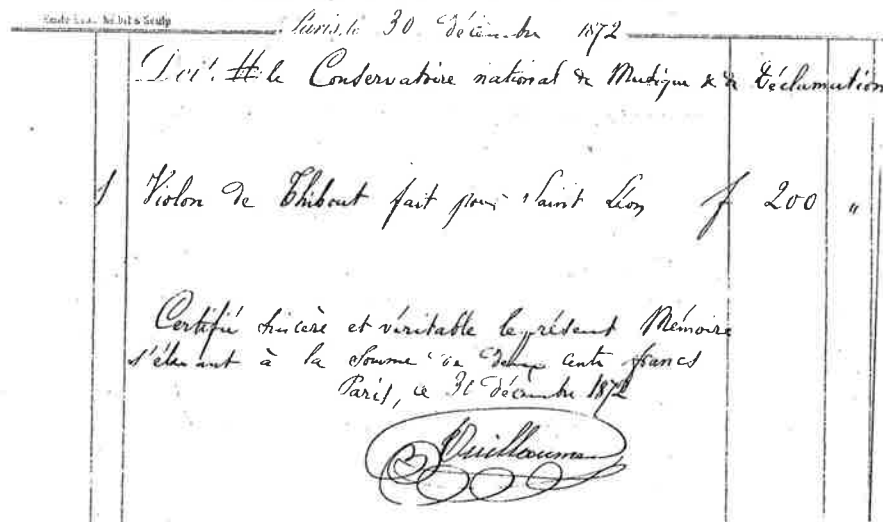 Paris, le 30 décembre 1872
Doit M le Conservatoire national de Musique & de Déclamation
1 Violon de Thibout fait pour Saint Léon f 200 "
Certifié sincère et véritable le présent Mémoire
s'élevant à la somme de deux cents francs
Paris, ce 30 décembre 1872
Vuillaume